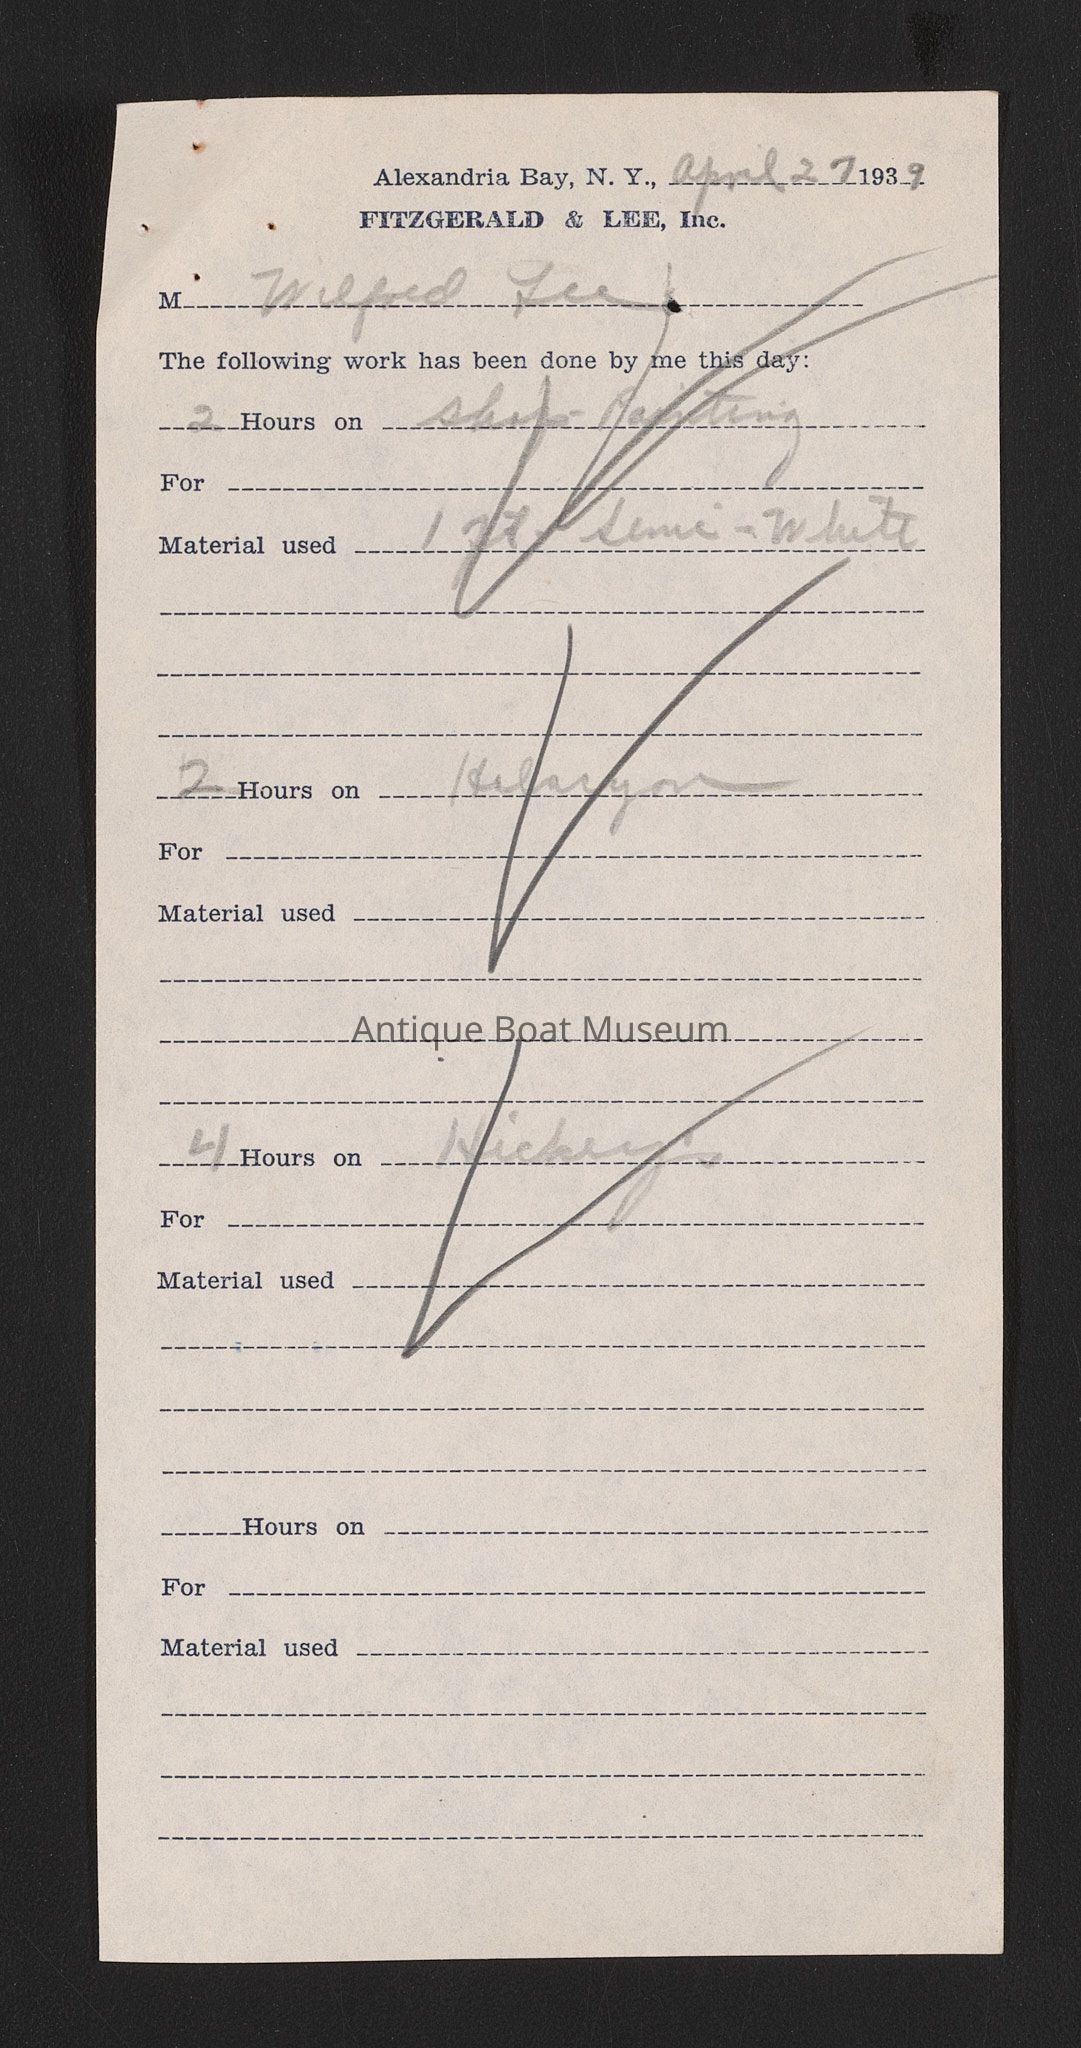 Alexandria Bay, N. Y., April 27 1939
FITZGERALD & LEE, Inc.
M Wilfred Lee
The following work has been done by me this day:
2 Hours on Shop Painting
For
Material used 1 pt - Semi - White
2 Hours on
For
Material used
Antique Boat Museum
4 Hours on Hickey's
For
Material used
Hours on
For
Material used